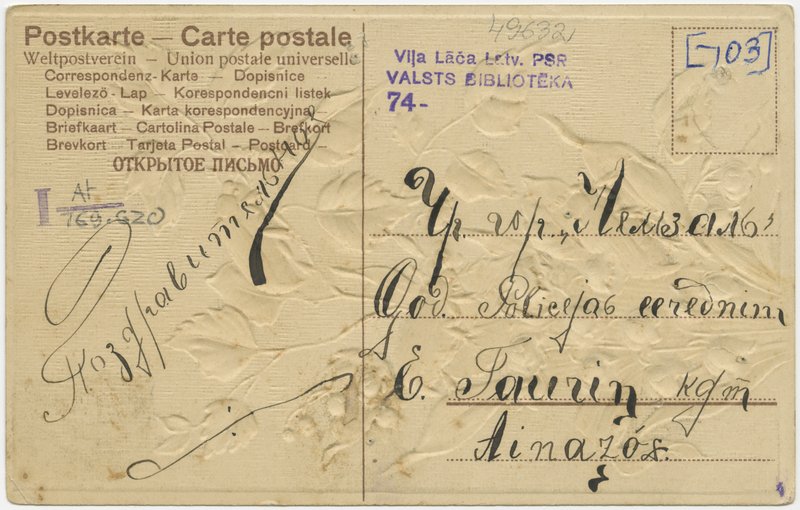 49632
Postkarte — Carte postale
Weltpostverein — Union postale universelle
Correspondenz-Karte — Dopisnice
Levelező-Lap — Korespondencni listek
Dopisnica — Karta korespondencyjna
Briefkaart — Cartolina Postale — Brefkort
Brevkort — Tarjeta Postal — Postcard —
ОТКРЫТОЕ ПИСЬМО
I At
169.620
Поздравительная
Viļa Lāča Latv. PSR
VALSTS BIBLIOTĒKA
74-
903
God. Policejas eerednim
E. Tauriņ kgm̄
Ainažós.